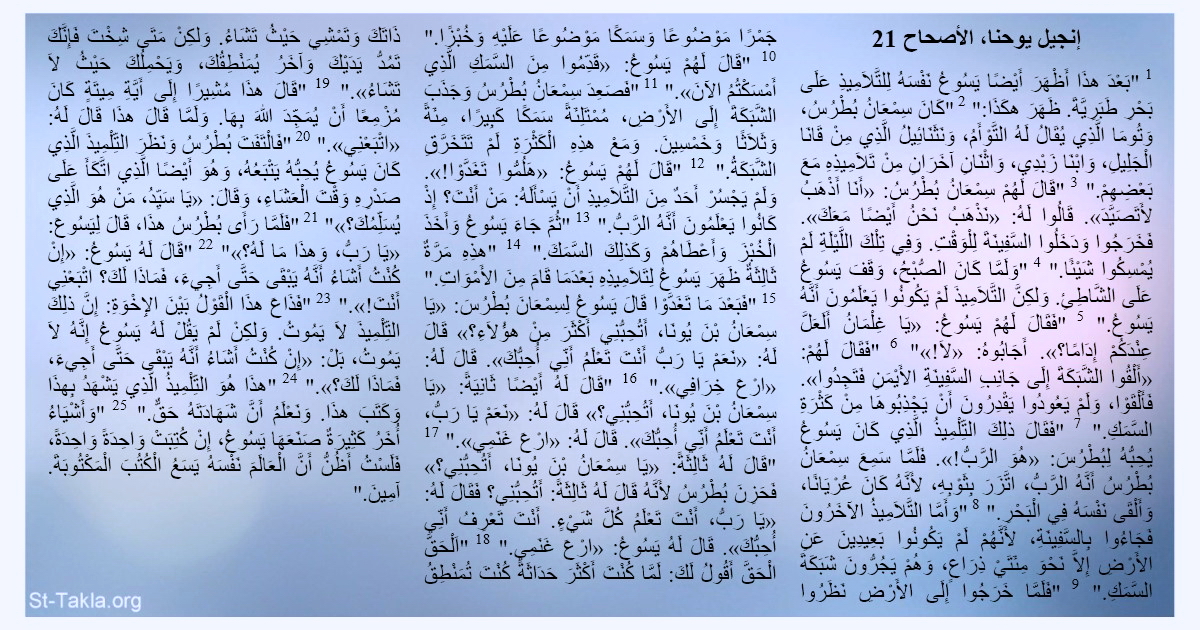 إنجيل يوحنا، الأصحاح 21
1 "بَعْدَ هذَا أَظْهَرَ أَيْضًا يَسُوعُ نَفْسَهُ لِلتَّلاَمِيذِ عَلَى
بَحْرِ طَبَرِيَّةَ. ظَهَرَ هكَذَا:" 2 "كَانَ سِمْعَانُ بُطْرُسُ،
وَتُومَا الَّذِي يُقَالُ لَهُ التَّوْأَمُ، وَنَثَنَائِيلُ الَّذِي مِنْ قَانَا
الْجَلِيلِ، وَابْنَا زَبْدِي، وَاثْنَانِ آخَرَانِ مِنْ تَلاَمِيذِهِ مَعَ
بَعْضِهِمْ." 3 "قَالَ لَهُمْ سِمْعَانُ بُطْرُسُ: «أَنَا أَذْهَبُ
لأَتَصَيَّدَ». قَالُوا لَهُ: «نَذْهَبُ نَحْنُ أَيْضًا مَعَكَ».
فَخَرَجُوا وَدَخَلُوا السَّفِينَةَ لِلْوَقْتِ. وَفِي تِلْكَ اللَّيْلَةِ لَمْ
يُمْسِكُوا شَيْئًا." 4 "وَلَمَّا كَانَ الصُّبْحُ، وَقَفَ يَسُوعُ
عَلَى الشَّاطِئِ. وَلكِنَّ التَّلاَمِيذَ لَمْ يَكُونُوا يَعْلَمُونَ أَنَّهُ
يَسُوعُ." 5 "فَقَالَ لَهُمْ يَسُوعُ: «يَا غِلْمَانُ أَلَعَلَّ
عِنْدَكُمْ إِدَامًا؟». أَجَابُوهُ: «لاَ!»" 6 "فَقَالَ لَهُمْ:
«أَلْقُوا الشَّبَكَةَ إِلَى جَانِبِ السَّفِينَةِ الأَيْمَنِ فَتَجِدُوا».
فَأَلْقَوْا، وَلَمْ يَعُودُوا يَقْدِرُونَ أَنْ يَجْذِبُوهَا مِنْ كَثْرَةِ
السَّمَكِ." 7 "فَقَالَ ذلِكَ التِّلْمِيذُ الَّذِي كَانَ يَسُوعُ
يُحِبُّهُ لِبُطْرُسَ: «هُوَ الرَّبُّ!». فَلَمَّا سَمِعَ سِمْعَانُ
بُطْرُسُ أَنَّهُ الرَّبُّ، اتَّزَرَ بِثَوْبِهِ، لأَنَّهُ كَانَ عُرْيَانًا،
وَأَلْقَى نَفْسَهُ فِي الْبَحْرِ." 8 "وَأَمَّا التَّلاَمِيذُ الآخَرُونَ
فَجَاءُوا بِالسَّفِينَةِ، لأَنَّهُمْ لَمْ يَكُونُوا بَعِيدِينَ عَنِ
الأَرْضِ إِلاَّ نَحْوَ مِئَتَيْ ذِرَاعٍ، وَهُمْ يَجُرُّونَ شَبَكَةَ
السَّمَكِ." 9 "فَلَمَّا خَرَجُوا إِلَى الأَرْضِ نَظَرُوا
جَمْرًا مَوْضُوعًا وَسَمَكًا مَوْضُوعًا عَلَيْهِ وَخُبْزًا."
10 "قَالَ لَهُمْ يَسُوعُ: «قَدِّمُوا مِنَ السَّمَكِ الَّذِي
أَمْسَكْتُمُ الآنَ»." 11 "فَصَعِدَ سِمْعَانُ بُطْرُسُ وَجَذَبَ
الشَّبَكَةَ إِلَى الأَرْضِ، مُمْتَلِئَةً سَمَكًا كَبِيرًا، مِئَةً
وَثَلاَثًا وَخَمْسِينَ. وَمَعْ هذِهِ الْكَثْرَةِ لَمْ تَتَخَرَّقِ
الشَّبَكَةُ." 12 "قَالَ لَهُمْ يَسُوعُ: «هَلُمُّوا تَغَدَّوْا!».
وَلَمْ يَجْسُرْ أَحَدٌ مِنَ التَّلاَمِيذِ أَنْ يَسْأَلَهُ: مَنْ أَنْتَ؟ إِذْ
كَانُوا يَعْلَمُونَ أَنَّهُ الرَّبُّ." 13 "ثُمَّ جَاءَ يَسُوعُ وَأَخَذَ
الْخُبْزَ وَأَعْطَاهُمْ وَكَذلِكَ السَّمَكَ." 14 "هذِهِ مَرَّةٌ
ثَالِثَةٌ ظَهَرَ يَسُوعُ لِتَلاَمِيذِهِ بَعْدَمَا قَامَ مِنَ الأَمْوَاتِ."
15 "فَبَعْدَ مَا تَغَدَّوْا قَالَ يَسُوعُ لِسِمْعَانَ بُطْرُسَ: «يَا
سِمْعَانُ بْنَ يُونَا، أَتُحِبُّنِي أَكْثَرَ مِنْ هؤُلاَءِ؟» قَالَ
لَهُ: «نَعَمْ يَا رَبُّ أَنْتَ تَعْلَمُ أَنِّي أُحِبُّكَ». قَالَ لَهُ:
«ارْعَ خِرَافِي»." 16 "قَالَ لَهُ أَيْضًا ثَانِيَةً: «يَا
سِمْعَانُ بْنَ يُونَا، أَتُحِبُّنِي؟» قَالَ لَهُ: «نَعَمْ يَا رَبُّ،
أَنْتَ تَعْلَمُ أَنِّي أُحِبُّكَ». قَالَ لَهُ: «ارْعَ غَنَمِي»." 17
"قَالَ لَهُ ثَالِثَةً: «يَا سِمْعَانُ بْنَ يُونَا، أَتُحِبُّنِي؟»
فَحَزِنَ بُطْرُسُ لأَنَّهُ قَالَ لَهُ ثَالِثَةً: أَتُحِبُّنِي؟ فَقَالَ لَهُ:
«يَا رَبُّ، أَنْتَ تَعْلَمُ كُلَّ شَيْءٍ. أَنْتَ تَعْرِفُ أَنِّي
أُحِبُّكَ». قَالَ لَهُ يَسُوعُ: «ارْعَ غَنَمِي." 18 "اَلْحَقَّ
الْحَقَّ أَقُولُ لَكَ: لَمَّا كُنْتَ أَكْثَرَ حَدَاثَةً كُنْتَ تُمَنْطِقُ
ذَاتَكَ وَتَمْشِي حَيْثُ تَشَاءُ. وَلكِنْ مَتَى شِخْتَ فَإِنَّكَ
تَمُدُّ يَدَيْكَ وَآخَرُ يُمَنْطِقُكَ، وَيَحْمِلُكَ حَيْثُ لاَ
تَشَاءُ»." 19 "قَالَ هذَا مُشِيرًا إِلَى أَيَّةِ مِيتَةٍ كَانَ
مُزْمِعًا أَنْ يُمَجِّدَ اللهَ بِهَا. وَلَمَّا قَالَ هذَا قَالَ لَهُ:
«اتْبَعْنِي»." 20 "فَالْتَفَتَ بُطْرُسُ وَنَظَرَ التِّلْمِيذَ الَّذِي
كَانَ يَسُوعُ يُحِبُّهُ يَتْبَعُهُ، وَهُوَ أَيْضًا الَّذِي اتَّكَأَ عَلَى
صَدْرِهِ وَقْتَ الْعَشَاءِ، وَقَالَ: «يَا سَيِّدُ، مَنْ هُوَ الَّذِي
يُسَلِّمُكَ؟»" 21 "فَلَمَّا رَأَى بُطْرُسُ هذَا، قَالَ لِيَسُوعَ:
«يَا رَبُّ، وَهذَا مَا لَهُ؟»" 22 "قَالَ لَهُ يَسُوعُ: «إِنْ
كُنْتُ أَشَاءُ أَنَّهُ يَبْقَى حَتَّى أَجِيءَ، فَمَاذَا لَكَ؟ اتْبَعْنِي
أَنْتَ!»." 23 "فَذَاعَ هذَا الْقَوْلُ بَيْنَ الإِخْوَةِ: إِنَّ ذلِكَ
التِّلْمِيذَ لاَ يَمُوتُ. وَلكِنْ لَمْ يَقُلْ لَهُ يَسُوعُ إِنَّهُ لاَ
يَمُوتُ، بَلْ: «إِنْ كُنْتُ أَشَاءُ أَنَّهُ يَبْقَى حَتَّى أَجِيءَ،
فَمَاذَا لَكَ؟»." 24 "هذَا هُوَ التِّلْمِيذُ الَّذِي يَشْهَدُ بِهذَا
وَكَتَبَ هذَا. وَنَعْلَمُ أَنَّ شَهَادَتَهُ حَقٌّ." 25 "وَأَشْيَاءُ
أُخَرُ كَثِيرَةٌ صَنَعَهَا يَسُوعُ، إِنْ كُتِبَتْ وَاحِدَةً وَاحِدَةً،
فَلَسْتُ أَظُنُّ أَنَّ الْعَالَمَ نَفْسَهُ يَسَعُ الْكُتُبَ الْمَكْتُوبَةَ.
آمِينَ."
St-Takla.org